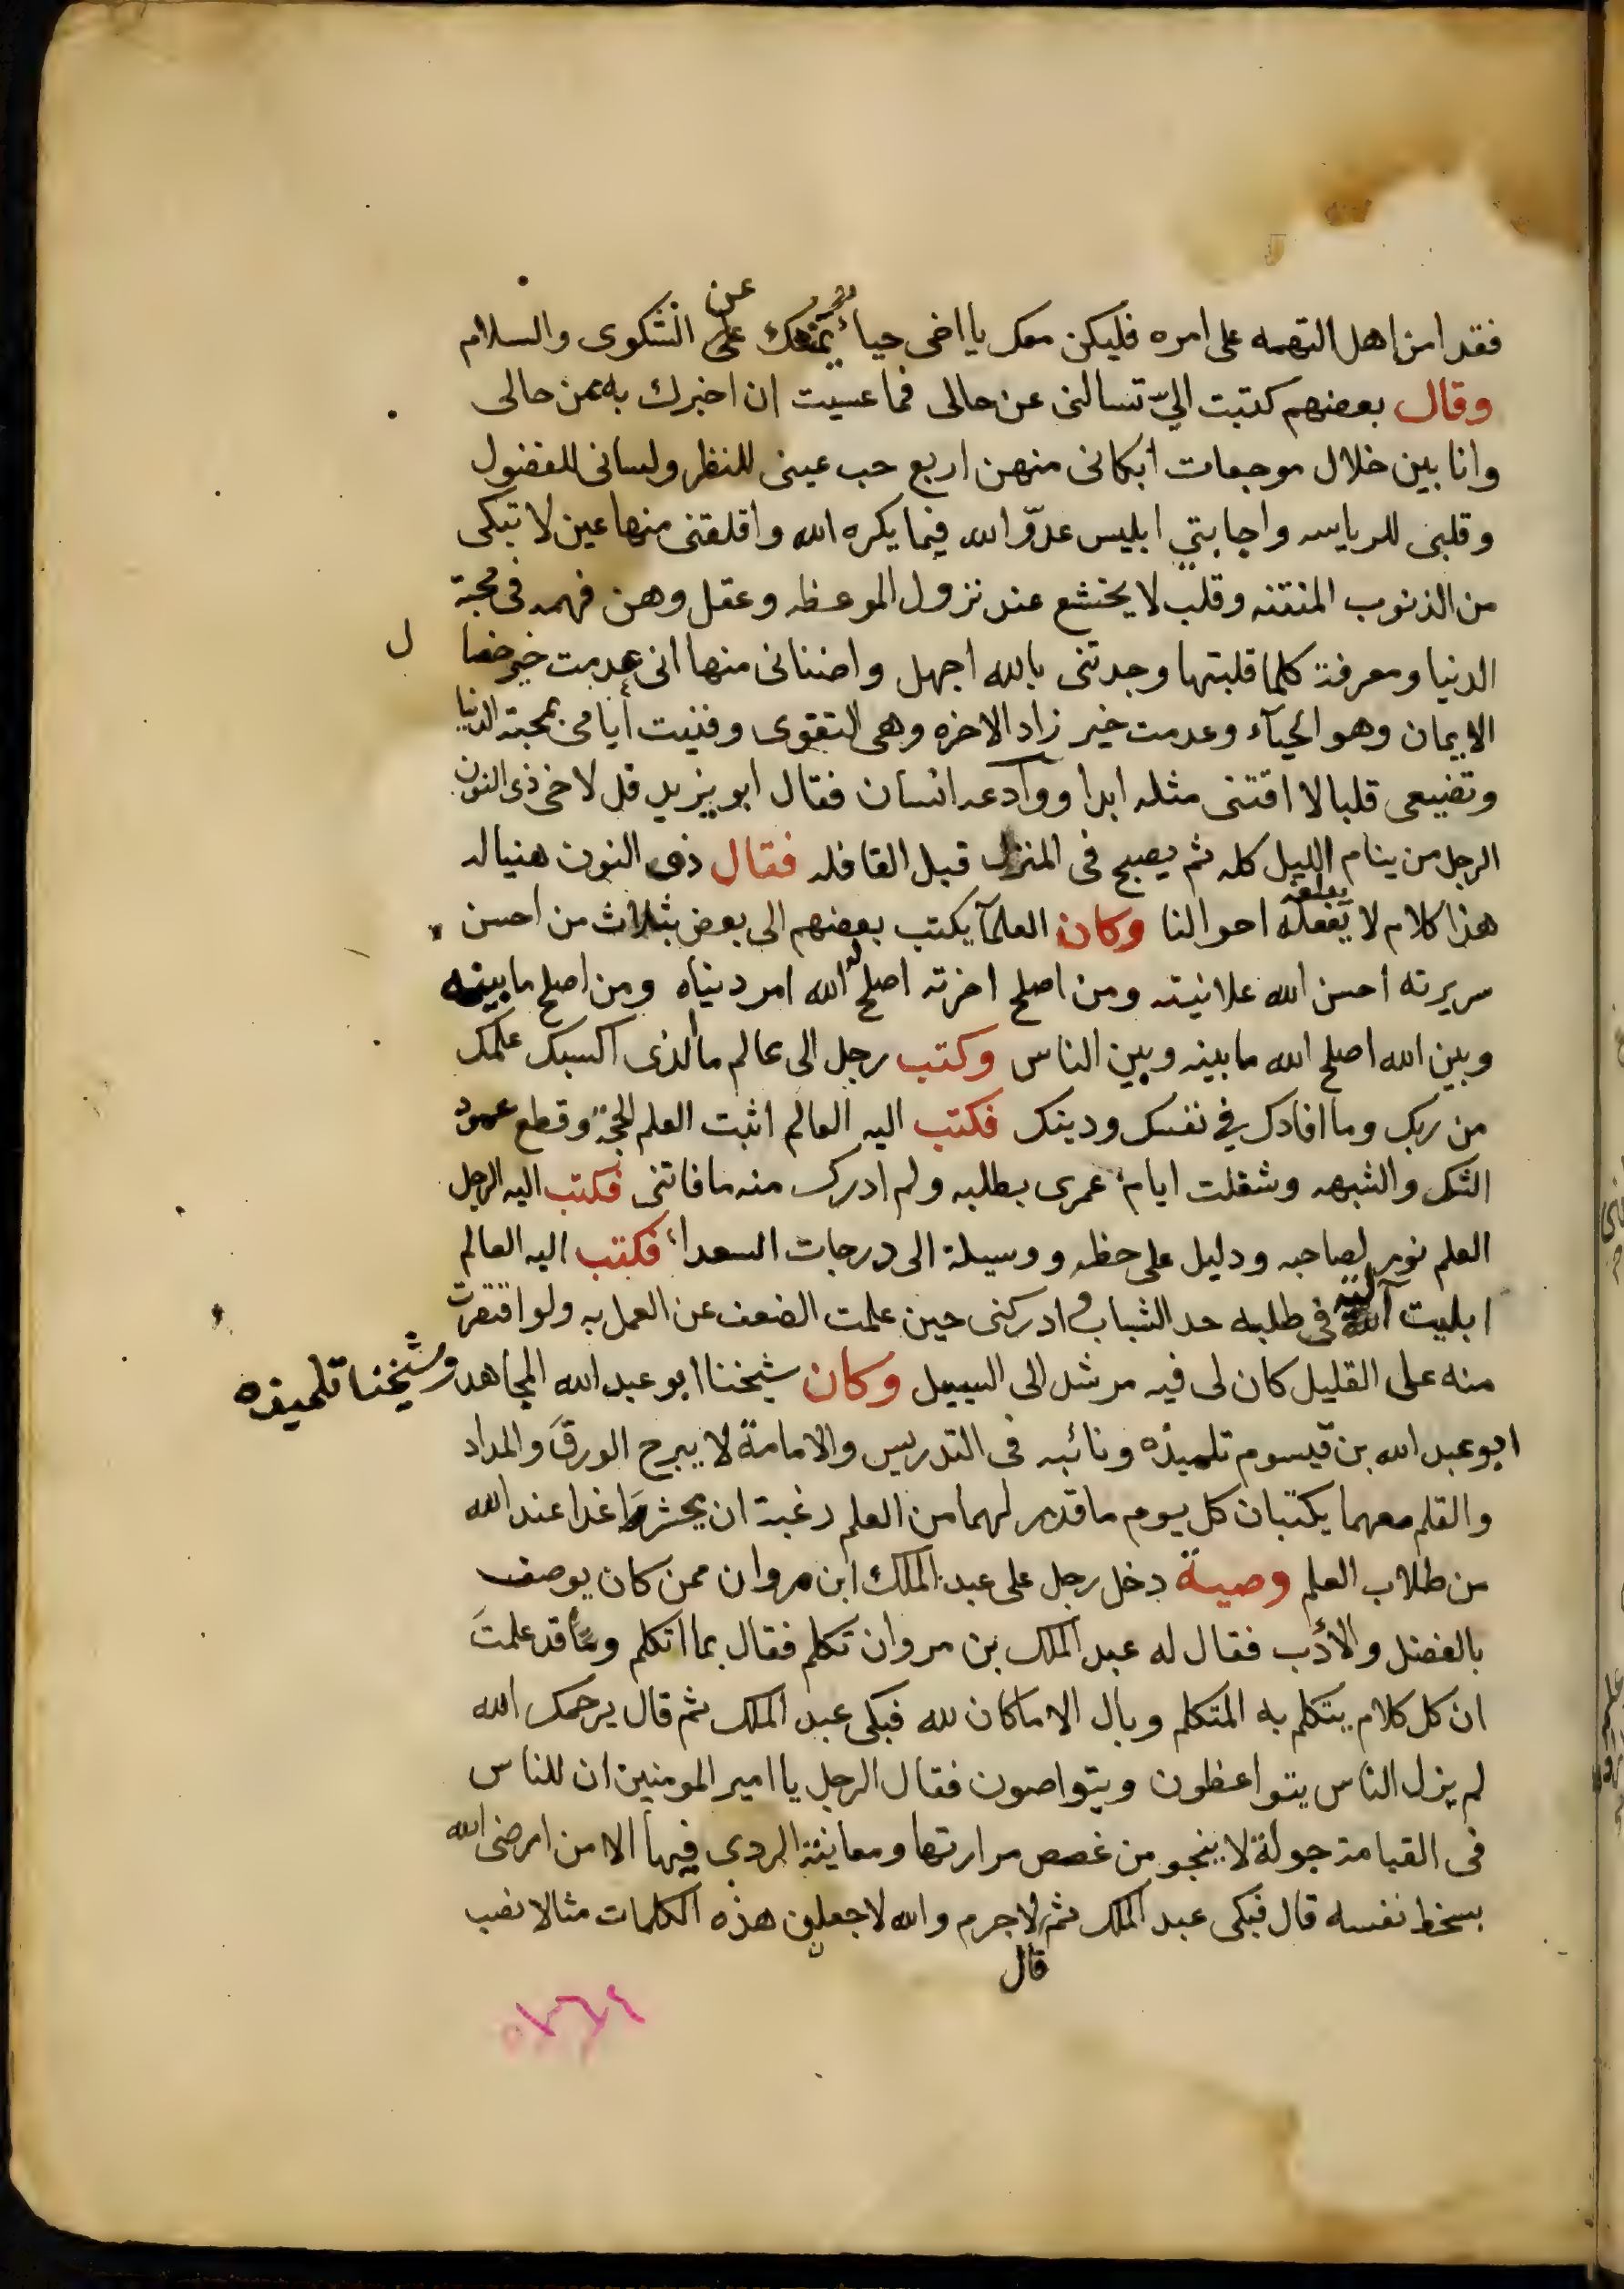 فقد امن اهل التهمه على امره فليكن معك يا اخى حياء يمنعك عن الشكوى والسلام
وقال بعضهم كتبت اليّ تسالنى عن حالى فما عسيت ان اخبرك به من حالى
وانا بين خلال موجعات ابكانى منهن اربع حب عينى للنظر ولسانى للفضول
وقلبى للرياسه واجابتي ابليس عدوّ الله فيما يكره الله واقلقنى منها عين لا تبكى
من الذنوب المنتنه وقلب لا يخشع عند نزول الموعظه وعقل وهن فهمه فى محبة
الدنيا ومعرفة كلما قلبتها وجدتنى بالله اجهل واضنانى منها انى عدمت خير خصا ل
الايمان وهو الحيآء وعدمت خير زاد الاخره وهى التقوى وفنيت أيامى بمحبة الدنيا
وتضييعى قلبا لا اقتنى مثله ابدا ووادعه انسان فقال ابو يزيد قل لاخى ذى النون
الرجل من ينام الليل كله ثم يصبح فى المنزل قبل القافله فقال ذى النون هنيا له
هذا كلام لا تبلغه احوالنا وكان العلمآ يكتب بعضهم الى بعض بثلاث من احسن
سريرته احسن الله علانيته ومن اصلح اخرته اصلح الله له امر دنياه ومن اصلح ما بينه
وبين الله اصلح الله ما بينه وبين الناس وكتب رجل الى عالم ما الذى اكسبك علمك
من ربك وما افادك في نفسك ودينك فكتب اليه العالم اثبت العلم الحجة وقطع عمود
الشك والشبهه وشغلت ايام عمرى بطلبه ولم ادرك منه ما فاتنى فكتب اليه الرجل
العلم نور لصاحبه ودليل على حظه ووسيلة الى درجات السعداء فكتب اليه العالم
ابليت اليه فى طلبه حد الشباب وادركنى حين علمت الضعف عن العمل به ولو اقتصرت
منه على القليل كان لى فيه مرشد الى السبيل وكان شيخنا ابو عبد الله المجاهد وشيخنا تلميذه
ابو عبد الله بن قيسوم تلميذه ونائبه فى التدريس والامامة لا يبرح الورق والمداد
والقلم معهما يكتبان كل يوم ما قدر لهما من العلم رغبة ان يحشرا غدا عند الله
من طلاب العلم وصية دخل رجل على عبد الملك ابن مروان ممن كان يوصف
بالفضل والأدب فقال له عبد الملك بن مروان تكلم فقال بما اتكلم وقد علمتَ
ان كل كلام يتكلم به المتكلم وبال الا ما كان لله فبكى عبد الملك ثم قال يرحمك الله
لم يزل الناس يتواعظون ويتواصون فقال الرجل يا امير المومنين ان للناس
فى القيامة جولة لا ينجو من غصص مرارتها ومعاينة الردى فيها الا من ارضى الله
بسخط نفسه قال فبكى عبد الملك ثم لا جرم والله لاجعلن هذه الكلمات مثالا نصب
قال